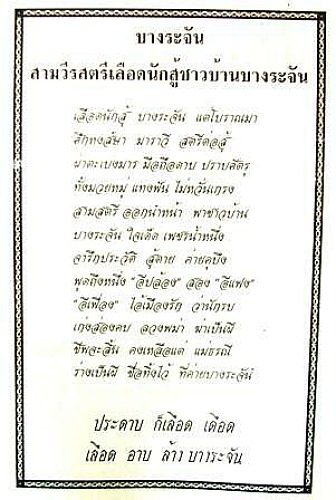 บางระจัน
สามวีรสตรีเลือดนักสู้ชาวบ้านบางระจัน
เลือดนักสู้ บางระจัน แต่โบราณมา
ศึกหงสา มาราวี สตรีต่อสู้
มาตะเบงมาร มือถือดาบ ปราบศัตรู
ทั้งมวยหมู่ แทงฟัน ไม่หวั่นเกรง
สามสตรี ออกนำหน้า พาชาวบ้าน
บางระจัน ใจเด็ด เพชรน้ำหนึ่ง
จารึกประวัติ สู้ตาย ค่าย
พูดถึงหนึ่ง "อีปล้อง" สอง "อีแฟง"
"อีเฟื่อง" ไอ้เมืองรัก ว่านักรบ
เก่งส่องคบ ลวงพม่า ฆ่าเป็นผี
ชีพจะสิ้น คงเหลือแต่ แม่ธรณี
ร่างเป็นผี ชื่อทิ้งไว้ ที่ค่ายบางระจัน
ประดาบ ก็เลือด เดือด
เลือด อาบ ล้าง บางระจัน